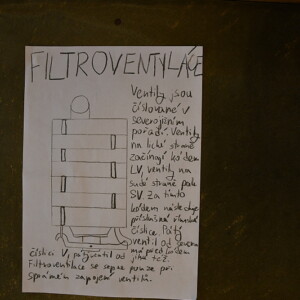 FILTROVENTYLÁCE
Ventily jsou
číslované v
severojižním
pořadí. Ventily
na liché straně
začínají kódem
LV, ventily na
sudé straně pak
SV. Za tímto
kódem následuje
příslušná římská
číslice. Pátý
ventil od severu
má před kódem
číslici V, prvý ventil od jihu též.
Filtroventilace se sepne pouze při
správném zapojení ventilů.